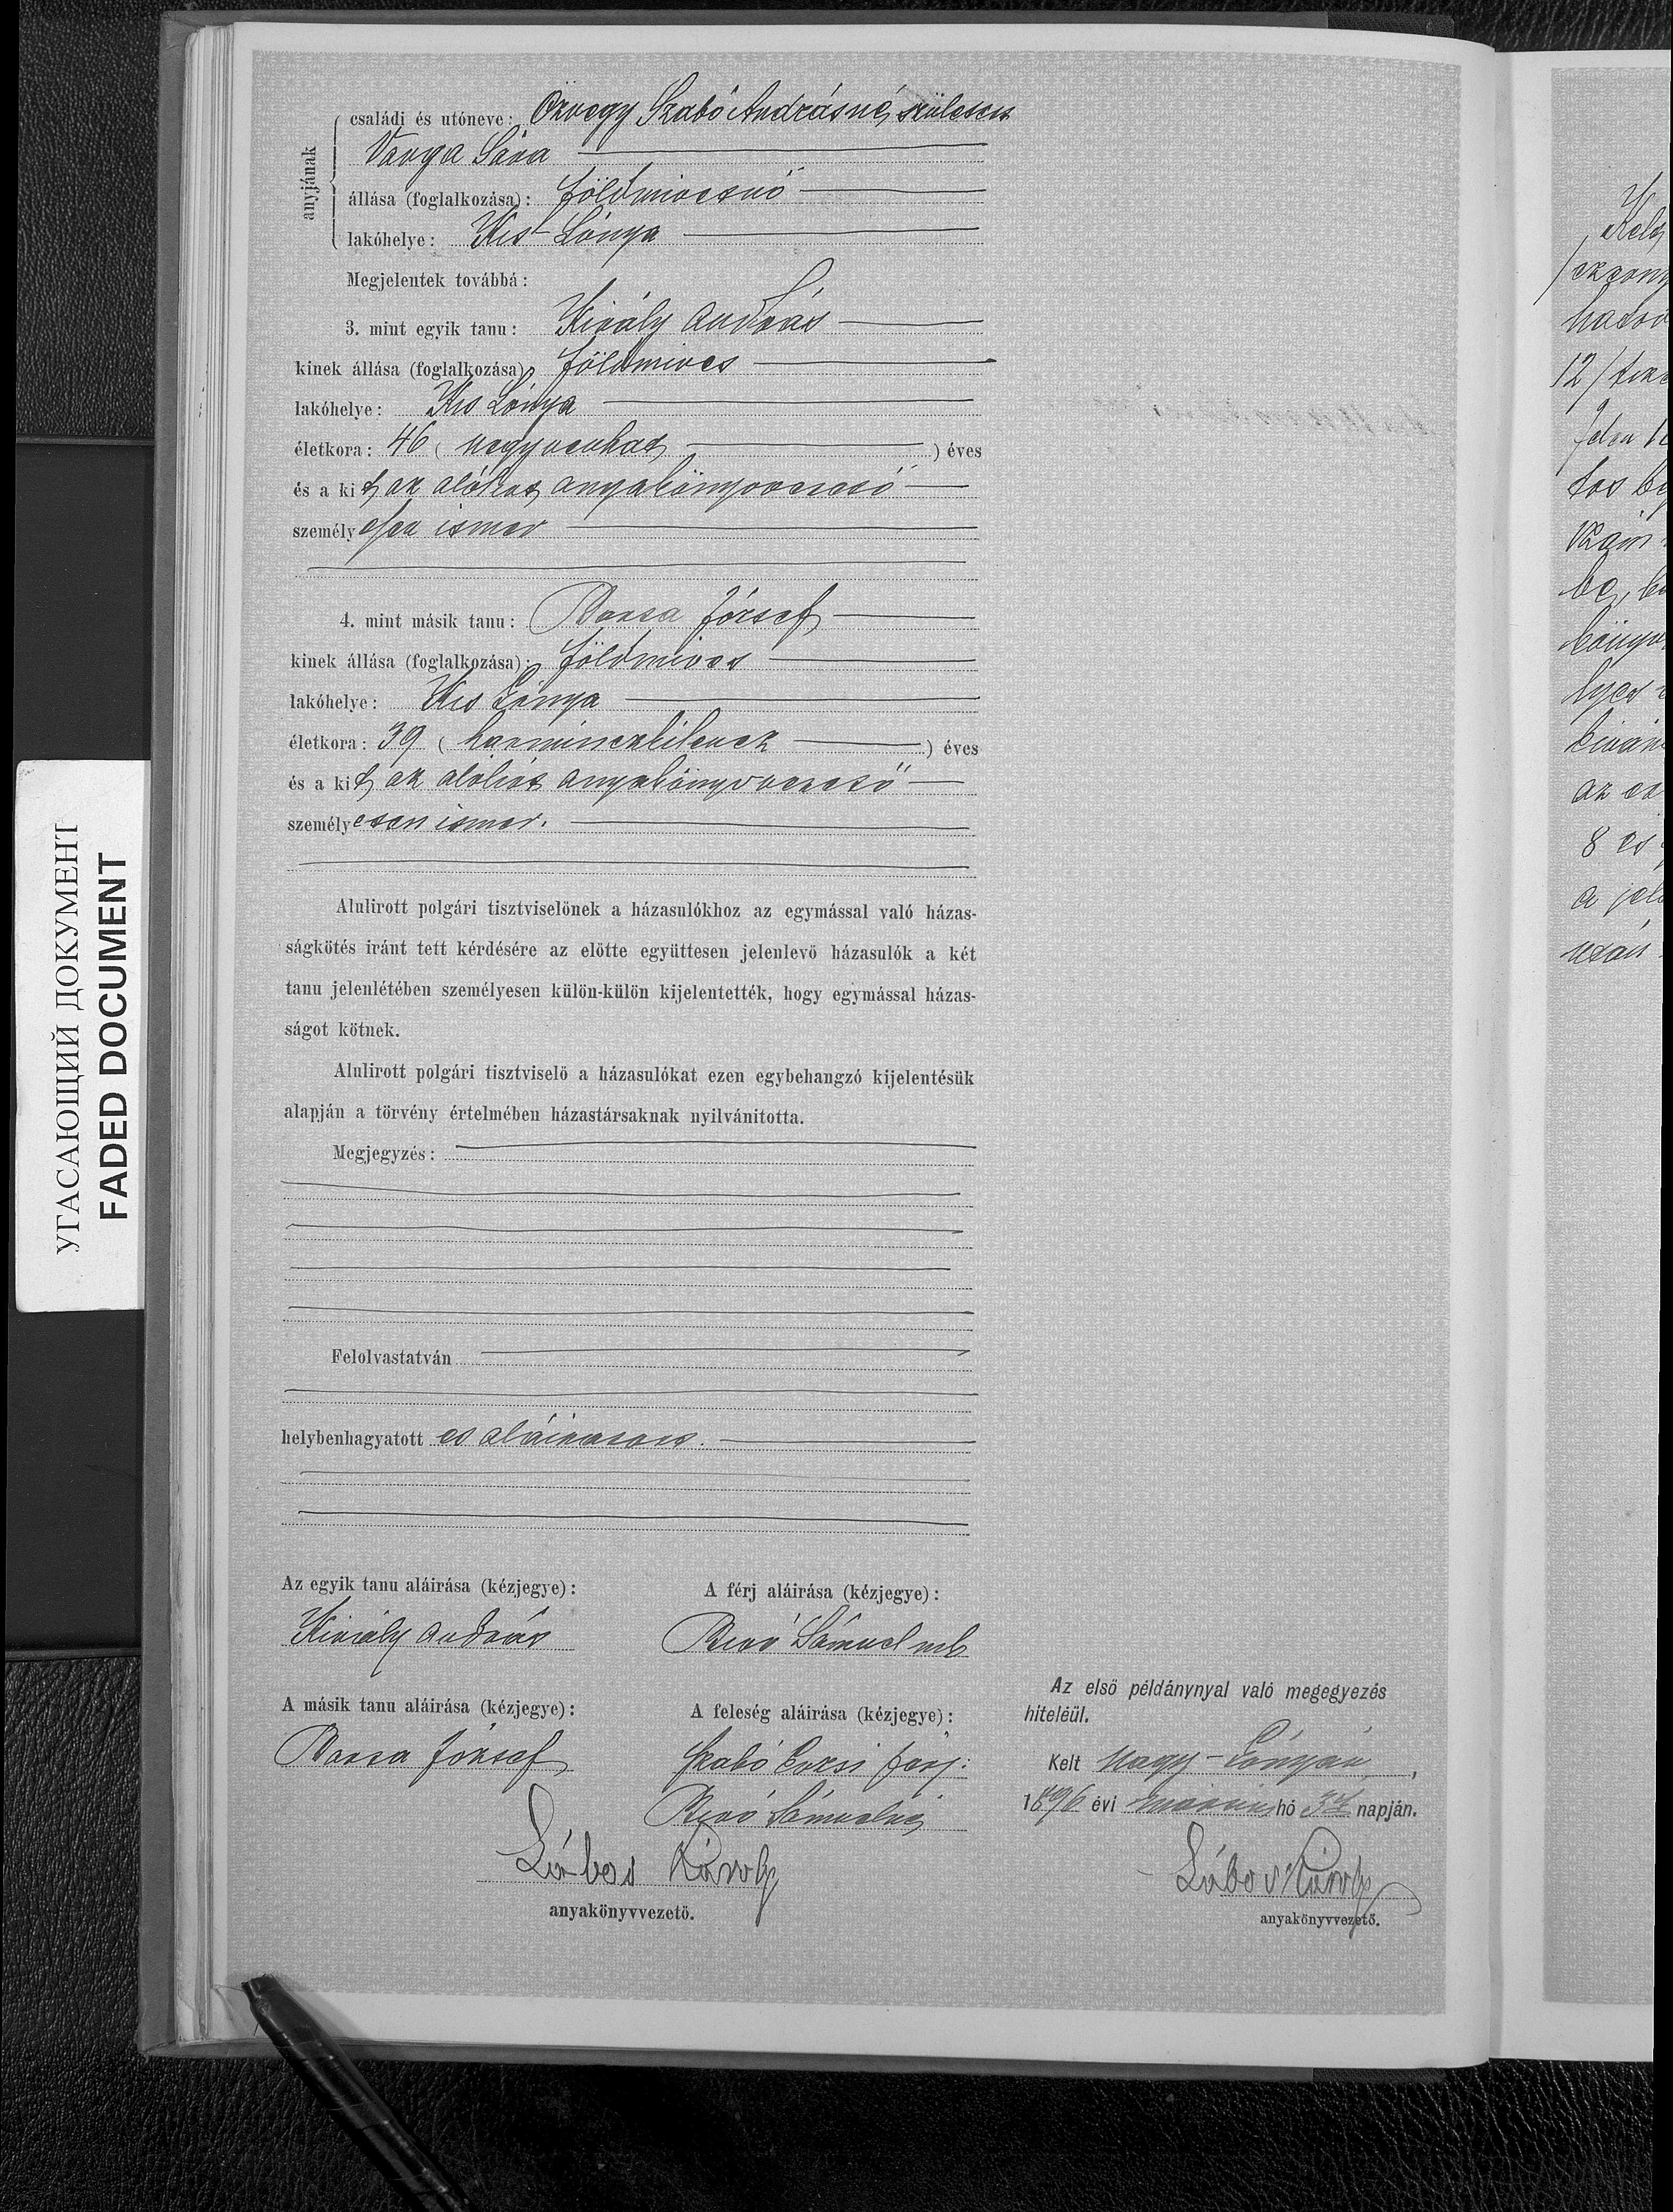 anyjának
családi és utóneve: Özvegy Szabó Andrásné, született
Varga Sára
állása (foglalkozása): földmivesnő
lakóhelye: Kis-Lónya
Megjelentek továbbá:
3. mint egyik tanu: Király András
kinek állása (foglalkozása): földmives
lakóhelye: Kis Lónya
életkora: 46 (negyvenhat) éves
és a kit az alólirt anyakönyvvezető
személyesen ismer
4. mint másik tanu: Barsa József
kinek állása (foglalkozása): földmives
lakóhelye: Kis Lónya
életkora: 39 (harminczkilencz) éves
és a kit az alólirt anyakönyvvezető
személyesen ismer.
Alulirott polgári tisztviselőnek a házasulókhoz az egymással való házas-
ságkötés iránt tett kérdésére az előtte együttesen jelenlevő házasulók a két
tanu jelenlétében személyesen külön-külön kijelentették, hogy egymással házas-
ságot kötnek.
Alulirott polgári tisztviselő a házasulókat ezen egybehangzó kijelentésük
alapján a törvény értelmében házastársaknak nyilvánitotta.
Megjegyzés:
Felolvastatván
helybenhagyatott és aláiratott.
Az egyik tanu aláirása (kézjegye):
Király András
A férj aláirása (kézjegye):
Biró Sámuel
A másik tanu aláirása (kézjegye):
Barsa József
A feleség aláirása (kézjegye):
Szabó Erzsi férj:
Biró Sámuelné
Lábos Károly
anyakönyvvezető.
Az első példánynyal való megegyezés
hiteléül.
Kelt Nagy-Lónyán,
1896 évi hó napján.
Lábos Károly
anyakönyvvezető.
УГАСАЮЩИЙ ДОКУМЕНТ
FADED DOCUMENT